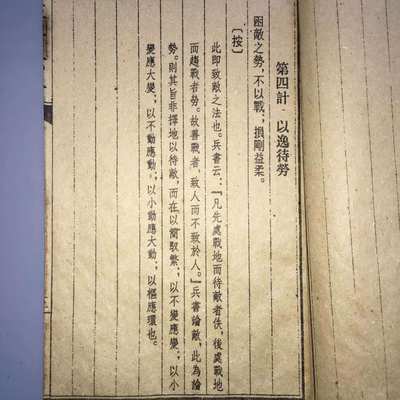 第四計 以逸待勞
困敵之勢,不以戰;損剛益柔。
〔按〕
此即致敵之法也。兵書云:『凡先處戰地而待敵者佚,後處戰地
而趨戰者勞。故善戰者,致人而不致於人。』兵書論敵,此為論
勢。則其旨非擇地以待敵,而在以簡馭繁;以不變應變;以小
變應大變;以不動應動;以小動應大動;以樞應環也。